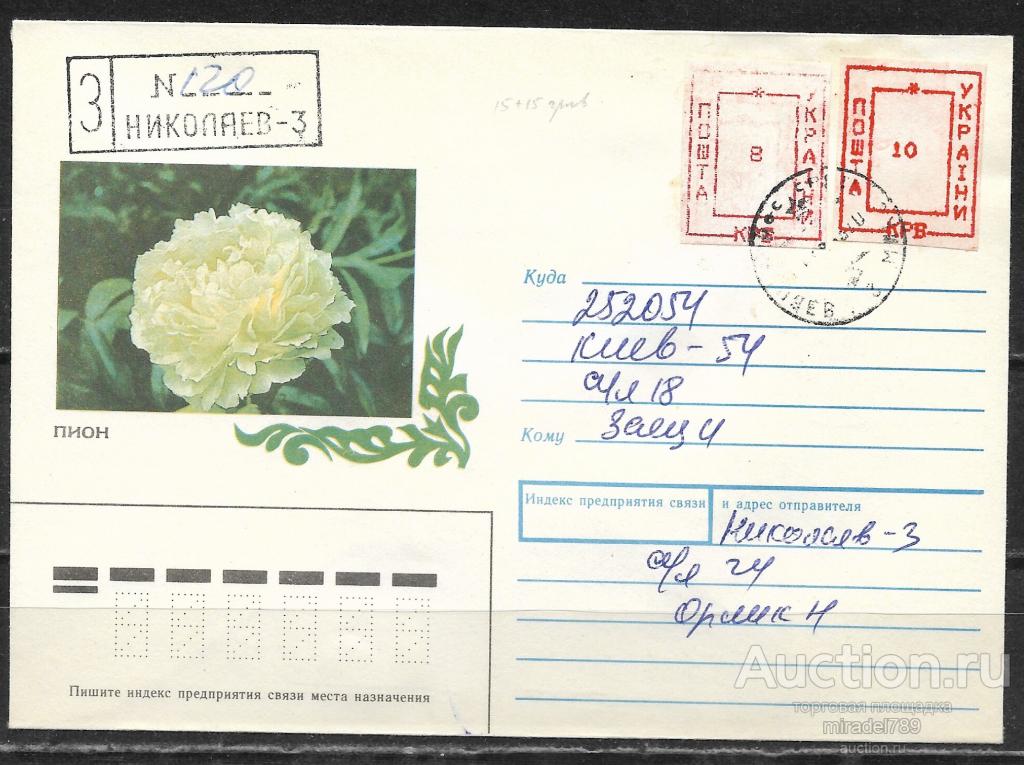 З
№ 120
НИКОЛАЕВ-3
15+15 грив.
ПОШТА
*
УКРАЇНИ
8
КРБ
ПОШТА
*
УКРАЇНИ
10
КРВ
ПИОН
Куда
252054
Киев-54
а/я 18
Кому
Заяц И
Индекс предприятия связи
и адрес отправителя
Николаев-3
а/я 24
Орлик Н
Пишите индекс предприятия связи места назначения
Auction.ru
торговая площадка
miradel789
auction.ru